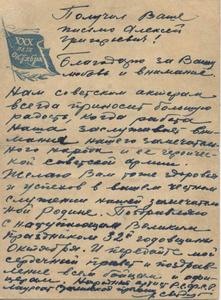 XXX
ЛЕТ
ОКТЯБРЯ
Получил Ваше
письмо Алексей
Григорьевич!
Благодарю за Вашу
любовь и внимание
Нам советским актерам
всегда приносит большую
радость, когда работа
наша заслуживает вни-
мания нашего замечатель-
ного народа и ее героичес-
кой советской армии.
Желаю Вам тоже здоровья
и успехов в вашем честном
служении нашей замечатель-
ной Родине. Поздравляю
с наступающим Великим
праздником 30й годовщины
Октября. И передайте мое
сердечный привет и поздрав-
ление всем бойцам и
Народный артист РСФСР
Лауреат Сталинской премии